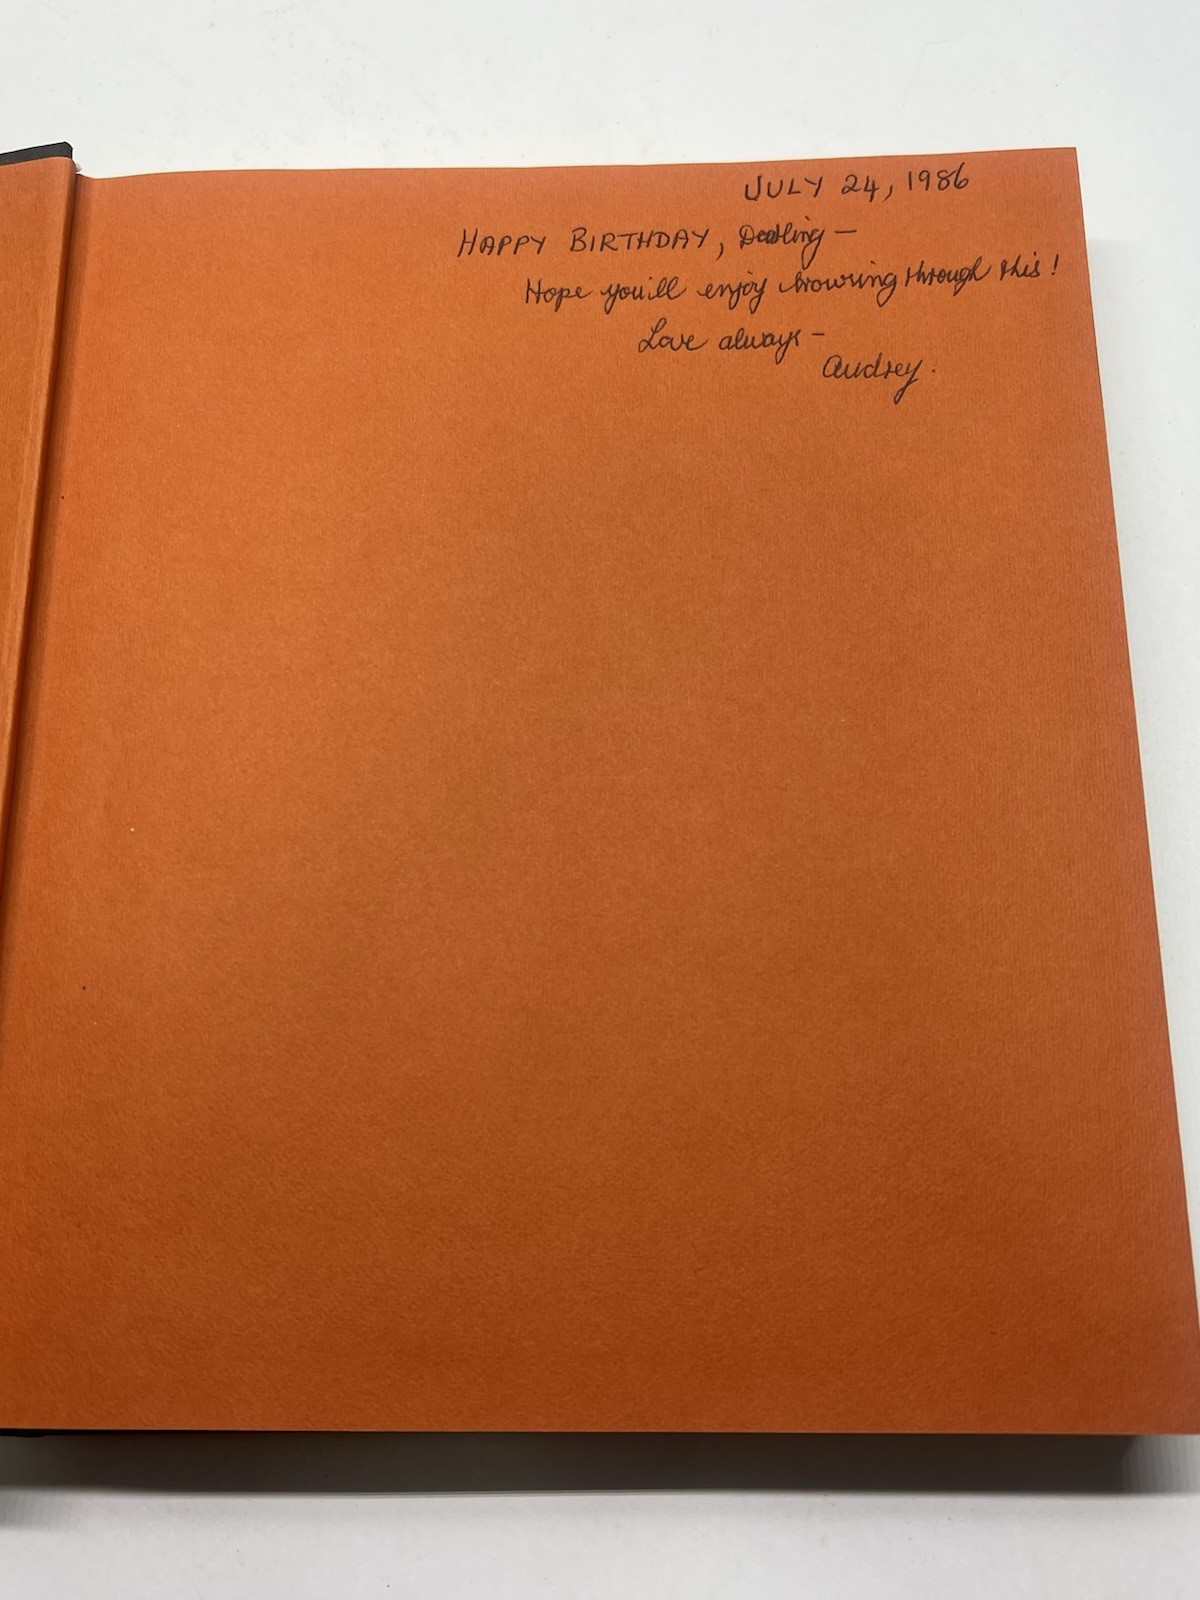 JULY 24, 1986
HAPPY BIRTHDAY, Darling –
Hope you'll enjoy browsing through this!
Love always –
Audrey.